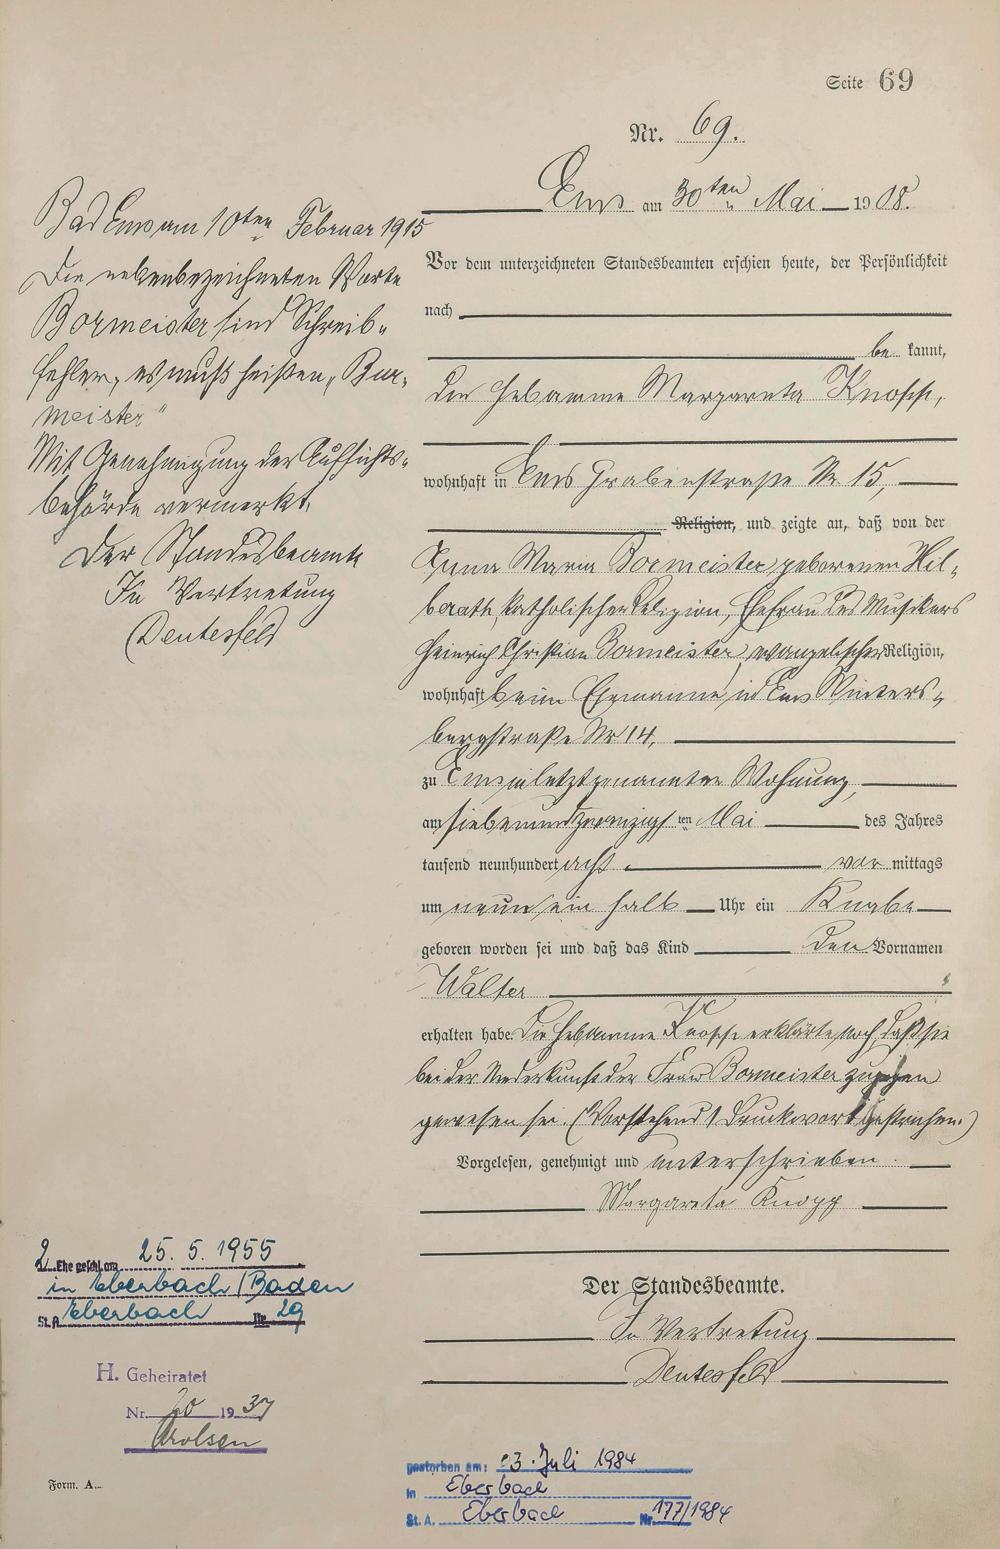 Seite 69
Nr. 69.
Ems am 30ten Mai 1908.
Vor dem unterzeichneten Standesbeamten erschien heute, der Persönlichkeit
nach
be kannt,
die Hebamme Margareta Knopp,
wohnhaft in Ems Grabenstraße Nr 15,
Religion, und zeigte an, daß von der
Anna Maria Bormeister geborenen Hil-
berath, katholischer Religion, Ehefrau des Musikers
Heinrich Christian Bormeister, evangelischer Religion,
wohnhaft beim Ehemanne in Ems Winters-
bergstraße Nr 14,
zu Ems in letztgenannter Wohnung,
am siebenundzwanzigsten Mai des Jahres
tausend neunhundert acht vor mittags
um neun ein halb Uhr ein Knabe
geboren worden sei und daß das Kind den Vornamen
Walter
erhalten habe. Die Hebamme Knopp erklärte noch, daß sie
bei der Niederkunft der Frau Bormeister zugegen
gewesen sei. (Vorstehend 1 Druckwort gestrichen.)
Vorgelesen, genehmigt und unterschrieben.
Margareta Knopp
Der Standesbeamte.
In Vertretung
Deutesfeld
Bad Ems am 10ten Februar 1915
Die nebenbezeichneten Worte
Bormeister sind Schreib-
fehler, es muß heißen „Bur-
meister"
Mit Genehmigung der Aufsichts-
behörde vermerkt.
Der Standesbeamte
In Vertretung
Deutesfeld
2. Ehe geschl. am 25. 5. 1955
in Eberbach/Baden
St. A. Eberbach Nr. 29
H. Geheiratet
Nr. 20 1937
Arolsen
Form. A.
gestorben am: 23. Juli 1984
in Eberbach
St. A. Eberbach Nr. 177/1984